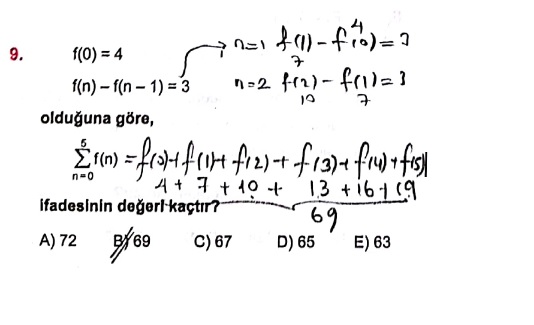 9.
f(0) = 4
n=1 f(1) - f(0) = 3
7 4
f(n) – f(n – 1) = 3
n=2 f(2) - f(1) = 3
10 7
olduğuna göre,
5
∑ f(n) = f(0)+f(1)+f(2)+f(3)+f(4)+f(5)
n=0
4+7+10+13+16+19
ifadesinin değeri kaçtır?
69
A) 72 B) 69 C) 67 D) 65 E) 63